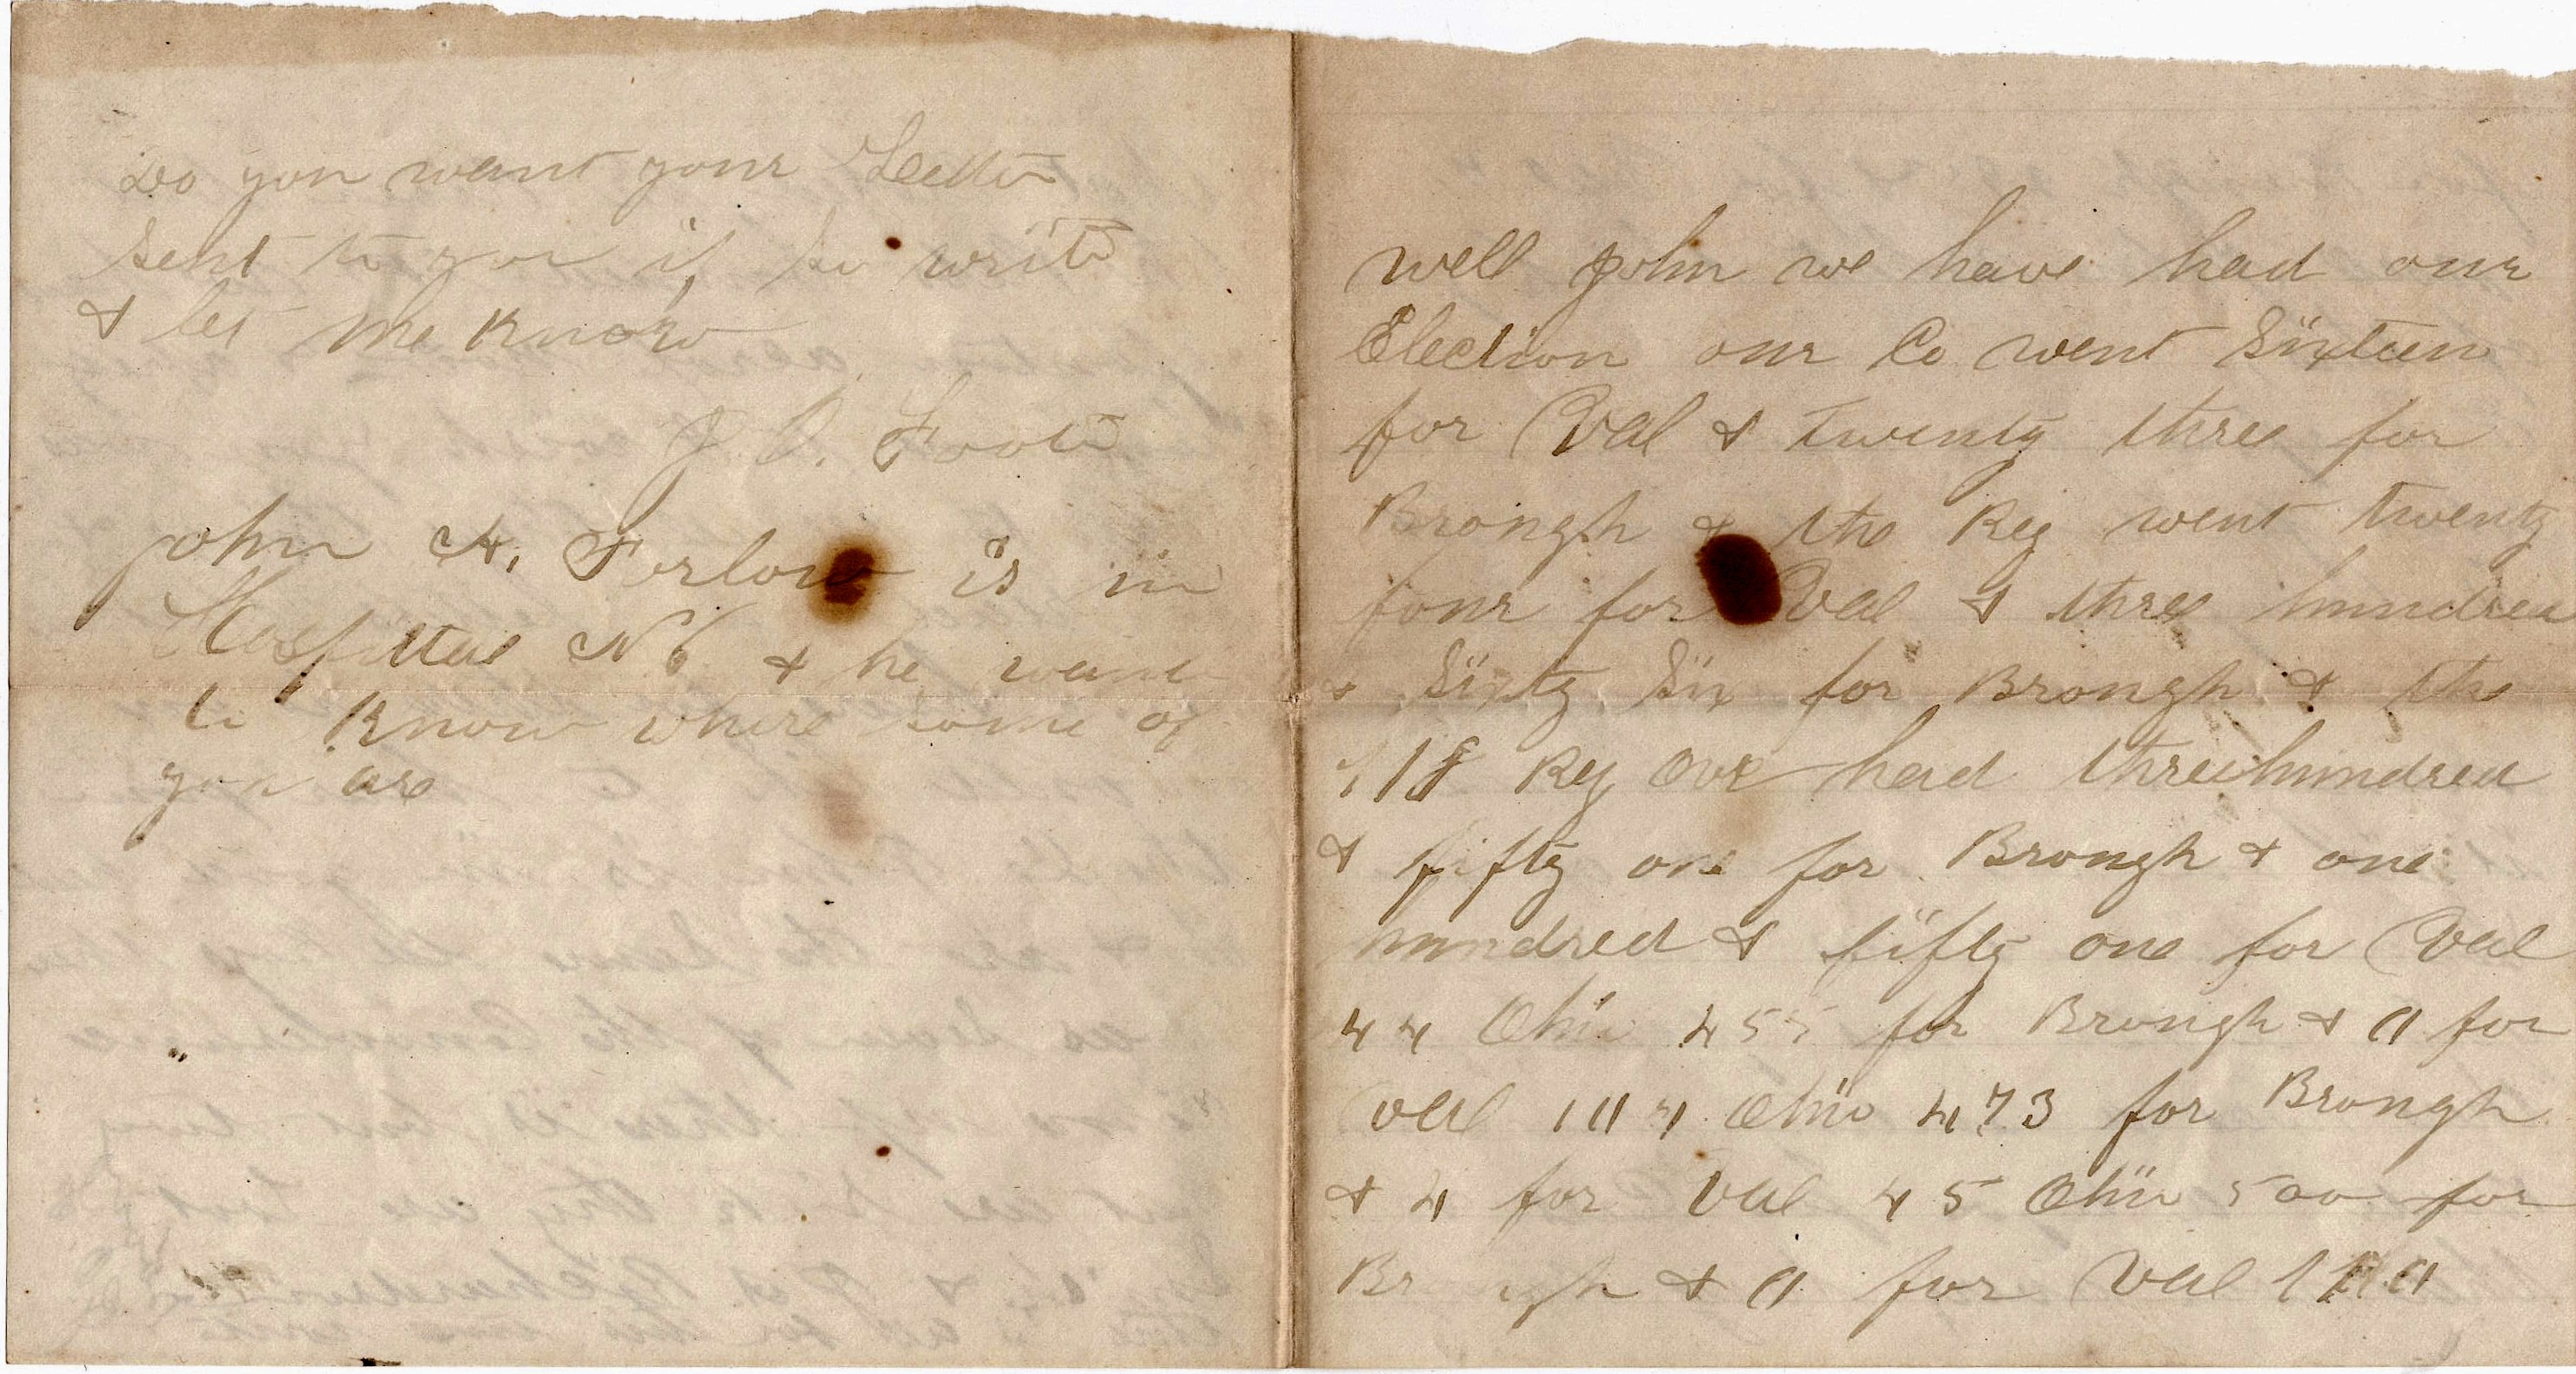 Do you want your Letter
sent to you if so write
& let me know
J. O. Foote
John H. Forlow is in
Hospittal N 6 & he wants
to Know where some of
you are
well John we have had our
Election our Co went Sixteen
for Val & twenty three for
Brough & the Reg went twenty
four for Val & three hundred
& Sixty Six for Brough & the
118 Reg Ove had threehundred
& fifty one for Brough & one
hundred & fifty one for Val
44 Ohio 455 for Brough & 9 for
Val 104 Ohio 473 for Brough
& 4 for Val 45 Ohio 500 for
Brough & 9 for Val